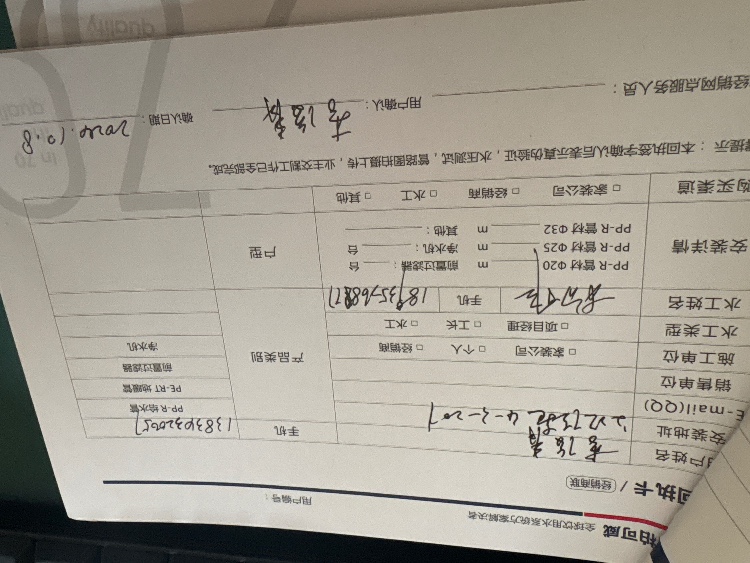 柏可威
全球饮用水系统方案解决者
回执卡 /
经销商联
用户编号：
用户姓名
手机 13834032057
安装地址 4-3-201
E-mail(QQ)
销售单位
施工单位 □ 家装公司 □ 个人 □ 经销商
水工类型 □ 项目经理 □ 工长 □ 水工
水工姓名 手机
产品类别
PP-R 给水管
PE-RT 地暖管
前置过滤器
净水机
安装详情
PP-R 管材 Φ20 m 前置过滤器： 台
PP-R 管材 Φ25 m 净水机： 台
PP-R 管材 Φ32 m 其他：
户型
购买渠道 □ 家装公司 □ 经销商 □ 水工 □ 其他
提示：本回执签字确认后表示真伪验证，水压测试，管路图拍摄上传，业主交割工作已全部完成。
经销网点服务人员：
用户确认：
确认日期： 2024.10.8
quality
in 70